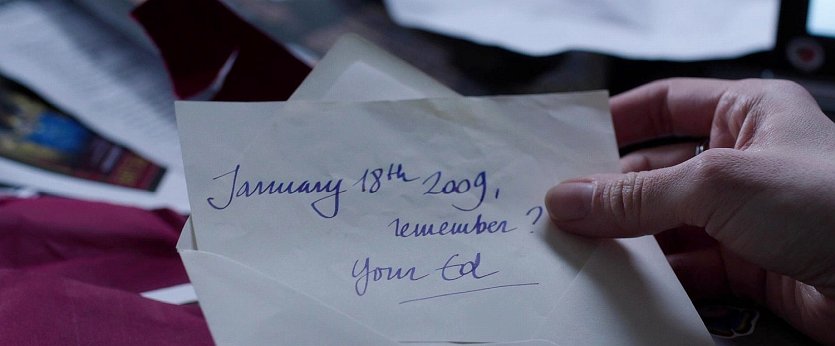 January 18th 2009,
remember?
Your Ed